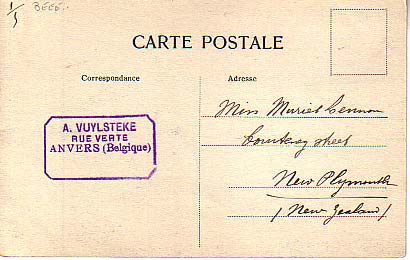 1/3 BELG.
CARTE POSTALE
Correspondance
Adresse
A. VUYLSTEKE
RUE VERTE
ANVERS (Belgique)
Miss Muriel Lennon
Courtenay street
New Plymouth
/ New Zealand /